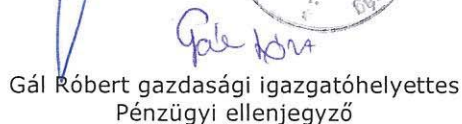 Gál Róbert gazdasági igazgatóhelyettes
Pénzügyi ellenjegyző